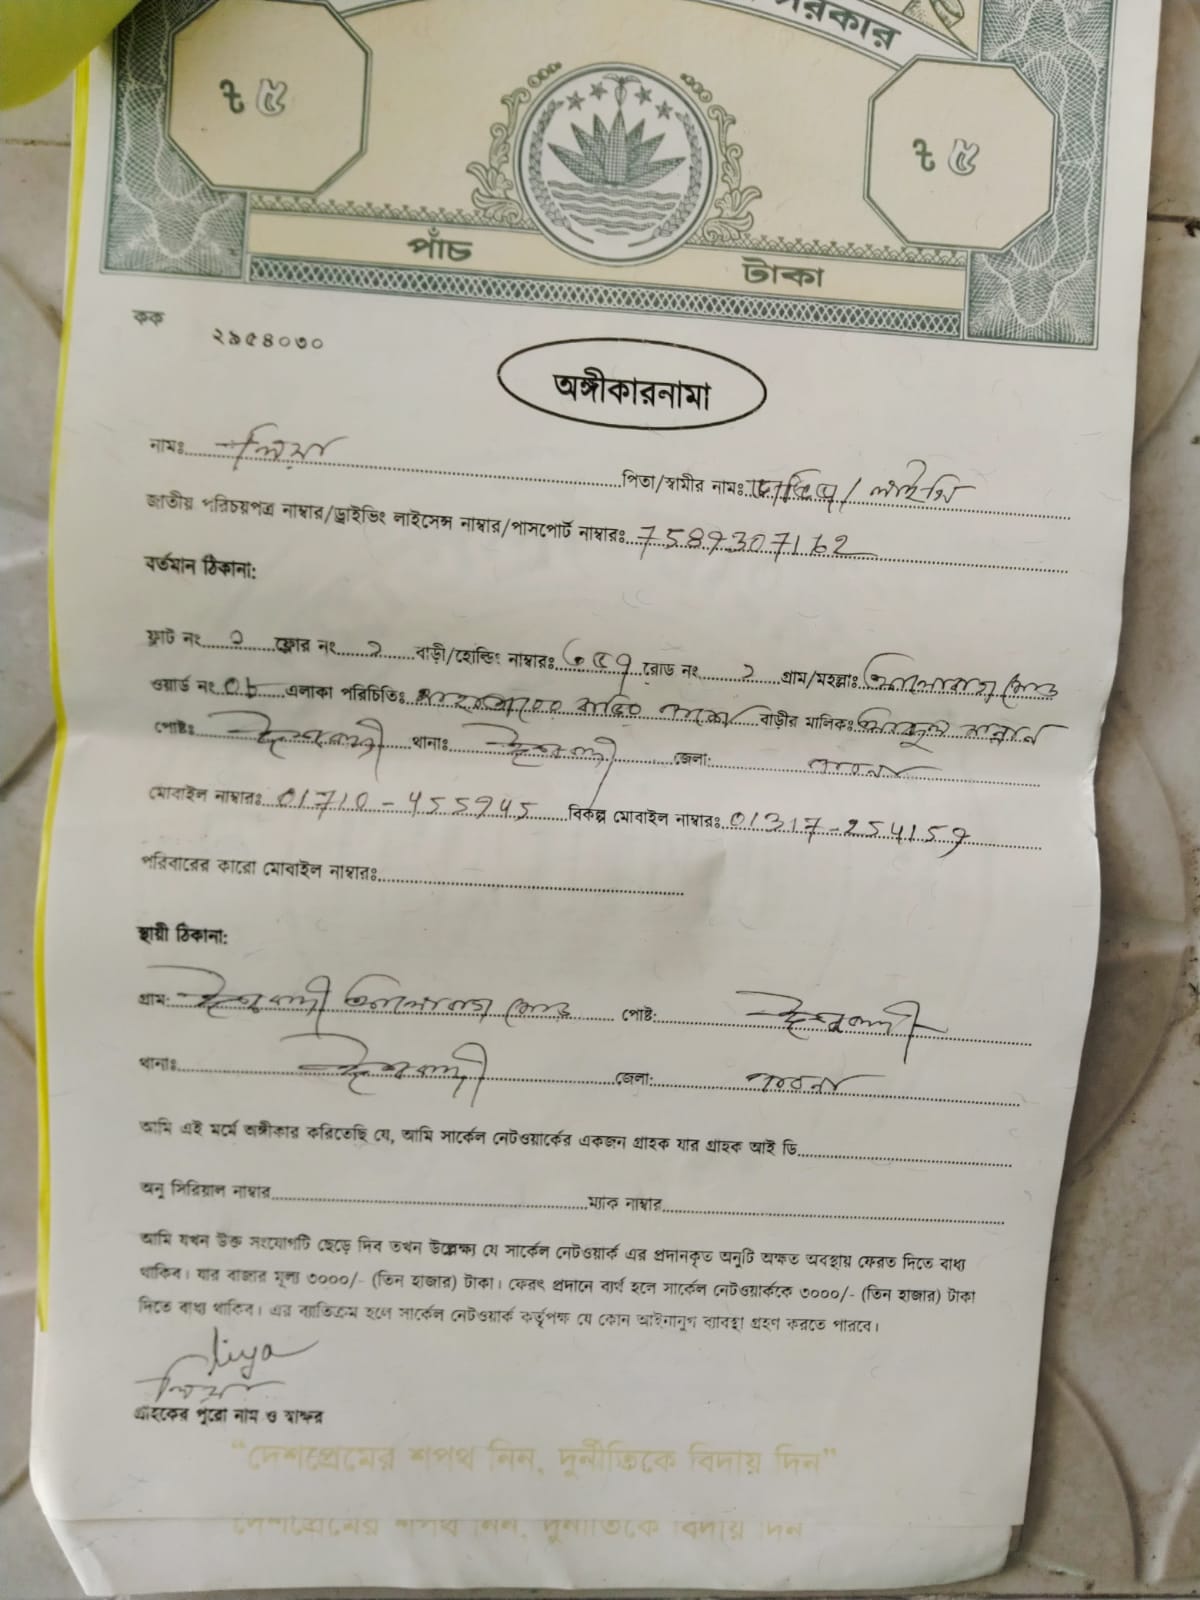 সরকার
৳ ৫
৳ ৫
পাঁচ টাকা
কক ২৯৫৪০৩০
অঙ্গীকারনামা
নামঃ লিয়া পিতা/স্বামীর নামঃ
জাতীয় পরিচয়পত্র নাম্বার/ড্রাইভিং লাইসেন্স নাম্বার/পাসপোর্ট নাম্বারঃ
বর্তমান ঠিকানা:
ফ্লাট নং ফ্লোর নং ২ বাড়ী/হোল্ডিং নাম্বারঃ ৩৫৭ রোড নং ২ গ্রাম/মহল্লাঃ
ওয়ার্ড নং 0৮ এলাকা পরিচিতিঃ বাড়ীর মালিকঃ
পোষ্টঃ ঈশ্বরদী থানাঃ ঈশ্বরদী জেলা: পাবনা
মোবাইল নাম্বারঃ বিকল্প মোবাইল নাম্বারঃ 01317-254159
পরিবারের কারো মোবাইল নাম্বারঃ
স্থায়ী ঠিকানা:
গ্রাম: ঈশ্বরদী পোষ্ট: ঈশ্বরদী
থানাঃ ঈশ্বরদী জেলা: পাবনা
আমি এই মর্মে অঙ্গীকার করিতেছি যে, আমি সার্কেল নেটওয়ার্কের একজন গ্রাহক যার গ্রাহক আই ডি
অনু সিরিয়াল নাম্বার ম্যাক নাম্বার
আমি যখন উক্ত সংযোগটি ছেড়ে দিব তখন উল্লেক্ষ্য যে সার্কেল নেটওয়ার্ক এর প্রদানকৃত অনুটি অক্ষত অবস্থায় ফেরত দিতে বাধ্য
থাকিব। যার বাজার মূল্য ৩০০০/- (তিন হাজার) টাকা। ফেরৎ প্রদানে ব্যর্থ হলে সার্কেল নেটওয়ার্ককে ৩০০০/- (তিন হাজার) টাকা
দিতে বাধ্য থাকিব। এর ব্যাতিক্রম হলে সার্কেল নেটওয়ার্ক কর্তৃপক্ষ যে কোন আইনানুগ ব্যাবস্থা গ্রহণ করতে পারবে।
liya
লিয়া
গ্রাহকের পুরো নাম ও স্বাক্ষর
“দেশপ্রেমের শপথ নিন, দুর্নীতিকে বিদায় দিন”
দেশপ্রেমের শপথ নিন, দুর্নীতিকে বিদায় দিন